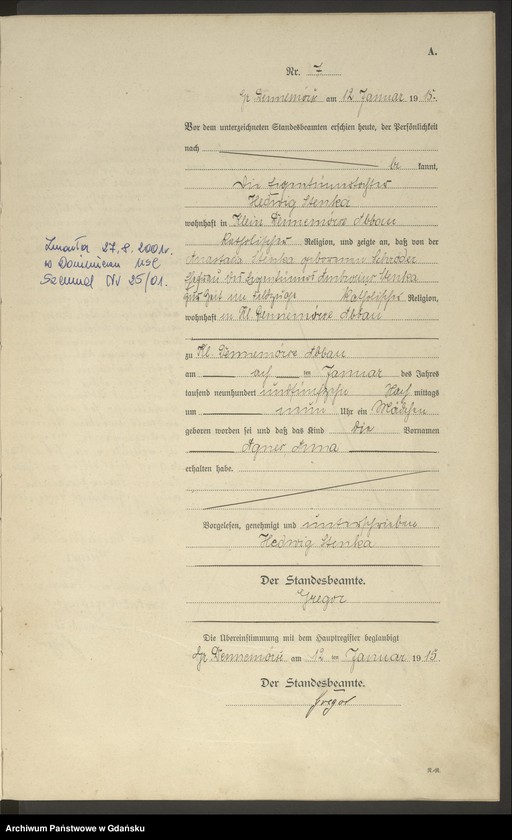 A.
Nr. 7
Gr. Dennemörse am 12 Januar 1915.
Vor dem unterzeichneten Standesbeamten erschien heute, der Persönlichkeit
nach be kannt,
Die Eigentümertochter
Hedwig Stenka
wohnhaft in Kleine Dennemörse Abbau
Katholischer Religion, und zeigte an, daß von der
Anastasia Stenka geborenen Schröder
Ehefrau des Eigentümers Stenka
zur Zeit im Feldzuge Katholischer Religion,
wohnhaft in Kl. Dennemörse Abbau
zu Kl. Dennemörse Abbau
am acht im Januar des Jahres
tausend neunhundert und fünfzehn Nach mittags
um neun Uhr ein Mädchen
geboren worden sei und daß das Kind die Vornamen
Agnes Anna
erhalten habe.
Vorgelesen, genehmigt und unterschrieben
Hedwig Stenka
Der Standesbeamte.
Gregor
Die Übereinstimmung mit dem Hauptregister beglaubigt
Gr. Dennemörse am 12 ten Januar 1915.
Der Standesbeamte.
Gregor
Zmarła 27.8.2001r.
w USC
Szemud Nr 25/01.
Archiwum Państwowe w Gdańsku